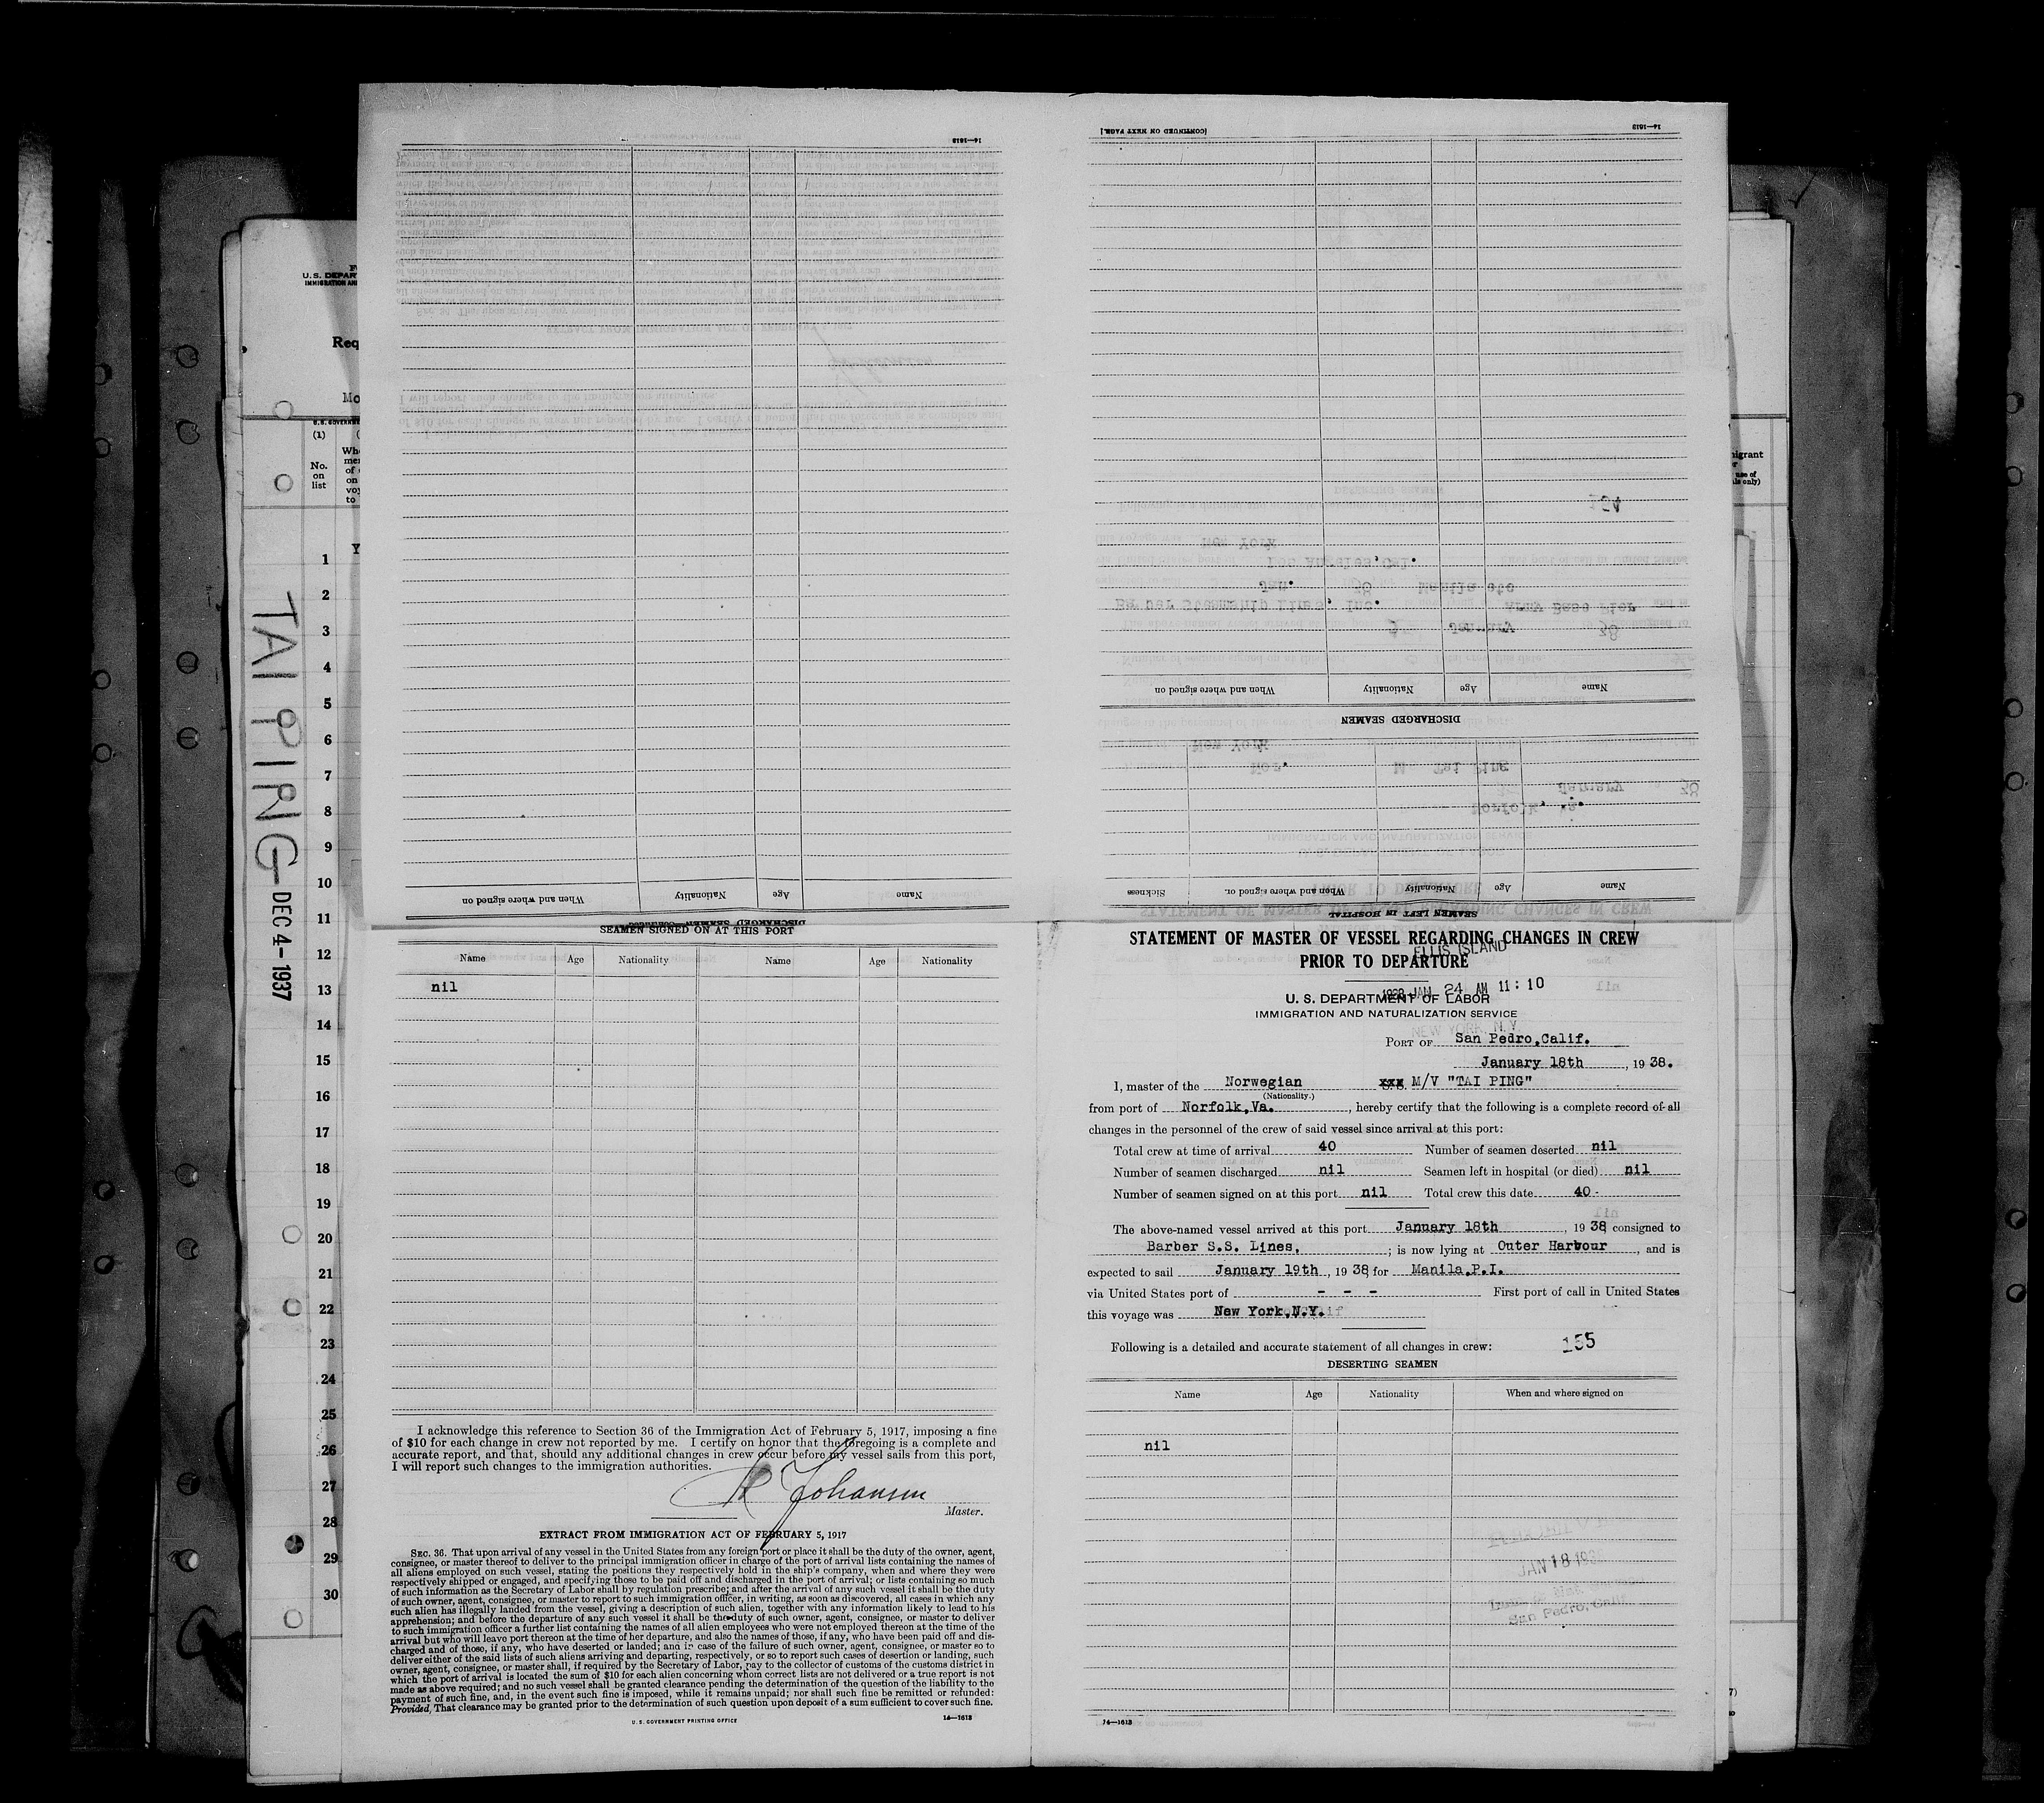 [CONTINUED ON NEXT PAGE.]
14—1613
14—1613
U.S. DEPAR
IMMIGRATION AN
Req
Mo
U.S. GOVERNME
(1)
No.
on
list
Who
me
of
on
voy
to
Y
igrant
use of
ls only)
1
2
3
4
5
6
7
8
9
10
11
12
13
14
15
16
17
18
19
20
21
22
23
24
25
26
27
28
29
30
TAI PING
DEC 4-1937
154
Name
Age
Nationality
When and where signed on
DISCHARGED SEAMEN
Name
Age
Nationality
When and where signed on
Sickness
SEAMEN LEFT IN HOSPITAL
Name
Age
Nationality
When and where signed on
DISCHARGED SEAMEN
SEAMEN SIGNED ON AT THIS PORT
Name Age Nationality Name Age Nationality
nil
I acknowledge this reference to Section 36 of the Immigration Act of February 5, 1917, imposing a fine
of $10 for each change in crew not reported by me. I certify on honor that the foregoing is a complete and
accurate report, and that, should any additional changes in crew occur before my vessel sails from this port,
I will report such changes to the immigration authorities.
Johansen
Master.
EXTRACT FROM IMMIGRATION ACT OF FEBRUARY 5, 1917
SEC. 36. That upon arrival of any vessel in the United States from any foreign port or place it shall be the duty of the owner, agent,
consignee, or master thereof to deliver to the principal immigration officer in charge of the port of arrival lists containing the names of
all aliens employed on such vessel, stating the positions they respectively hold in the ship's company, when and where they were
respectively shipped or engaged, and specifying those to be paid off and discharged in the port of arrival; or lists containing so much
of such information as the Secretary of Labor shall by regulation prescribe; and after the arrival of any such vessel it shall be the duty
of such owner, agent, consignee, or master to report to such immigration officer, in writing, as soon as discovered, all cases in which any
such alien has illegally landed from the vessel, giving a description of such alien, together with any information likely to lead to his
apprehension; and before the departure of any such vessel it shall be the duty of such owner, agent, consignee, or master to deliver
to such immigration officer a further list containing the names of all alien employees who were not employed thereon at the time of the
arrival but who will leave port thereon at the time of her departure, and also the names of those, if any, who have been paid off and dis-
charged and of those, if any, who have deserted or landed; and in case of the failure of such owner, agent, consignee, or master so to
deliver either of the said lists of such aliens arriving and departing, respectively, or so to report such cases of desertion or landing, such
owner, agent, consignee, or master shall, if required by the Secretary of Labor, pay to the collector of customs of the customs district in
which the port of arrival is located the sum of $10 for each alien concerning whom correct lists are not delivered or a true report is not
made as above required; and no such vessel shall be granted clearance pending the determination of the question of the liability to the
payment of such fine, and, in the event such fine is imposed, while it remains unpaid; nor shall such fine be remitted or refunded:
Provided, That clearance may be granted prior to the determination of such question upon deposit of a sum sufficient to cover such fine.
U. S. GOVERNMENT PRINTING OFFICE 14—1613
STATEMENT OF MASTER OF VESSEL REGARDING CHANGES IN CREW
PRIOR TO DEPARTURE
ELLIS ISLAND
1938 JAN 24 AM 11:10
NEW YORK, N.Y.
U. S. DEPARTMENT OF LABOR
IMMIGRATION AND NATURALIZATION SERVICE
PORT OF San Pedro, Calif.
January 18th, 1938.
I, master of the Norwegian xxx M/V "TAI PING"
(Nationality.)
from port of Norfolk, Va., hereby certify that the following is a complete record of all
changes in the personnel of the crew of said vessel since arrival at this port:
Total crew at time of arrival 40 Number of seamen deserted nil
Number of seamen discharged nil Seamen left in hospital (or died) nil
Number of seamen signed on at this port nil Total crew this date 40-
The above-named vessel arrived at this port January 18th, 1938, consigned to
Barber S.S. Lines, ; is now lying at Outer Harbour, and is
expected to sail January 19th, 1938, for Manila, P.I.
via United States port of - - - First port of call in United States
this voyage was New York, N.Y.
Following is a detailed and accurate statement of all changes in crew: 155
DESERTING SEAMEN
Name Age Nationality When and where signed on
nil
JAN 18 193
San Pedro, Calif
14—1613